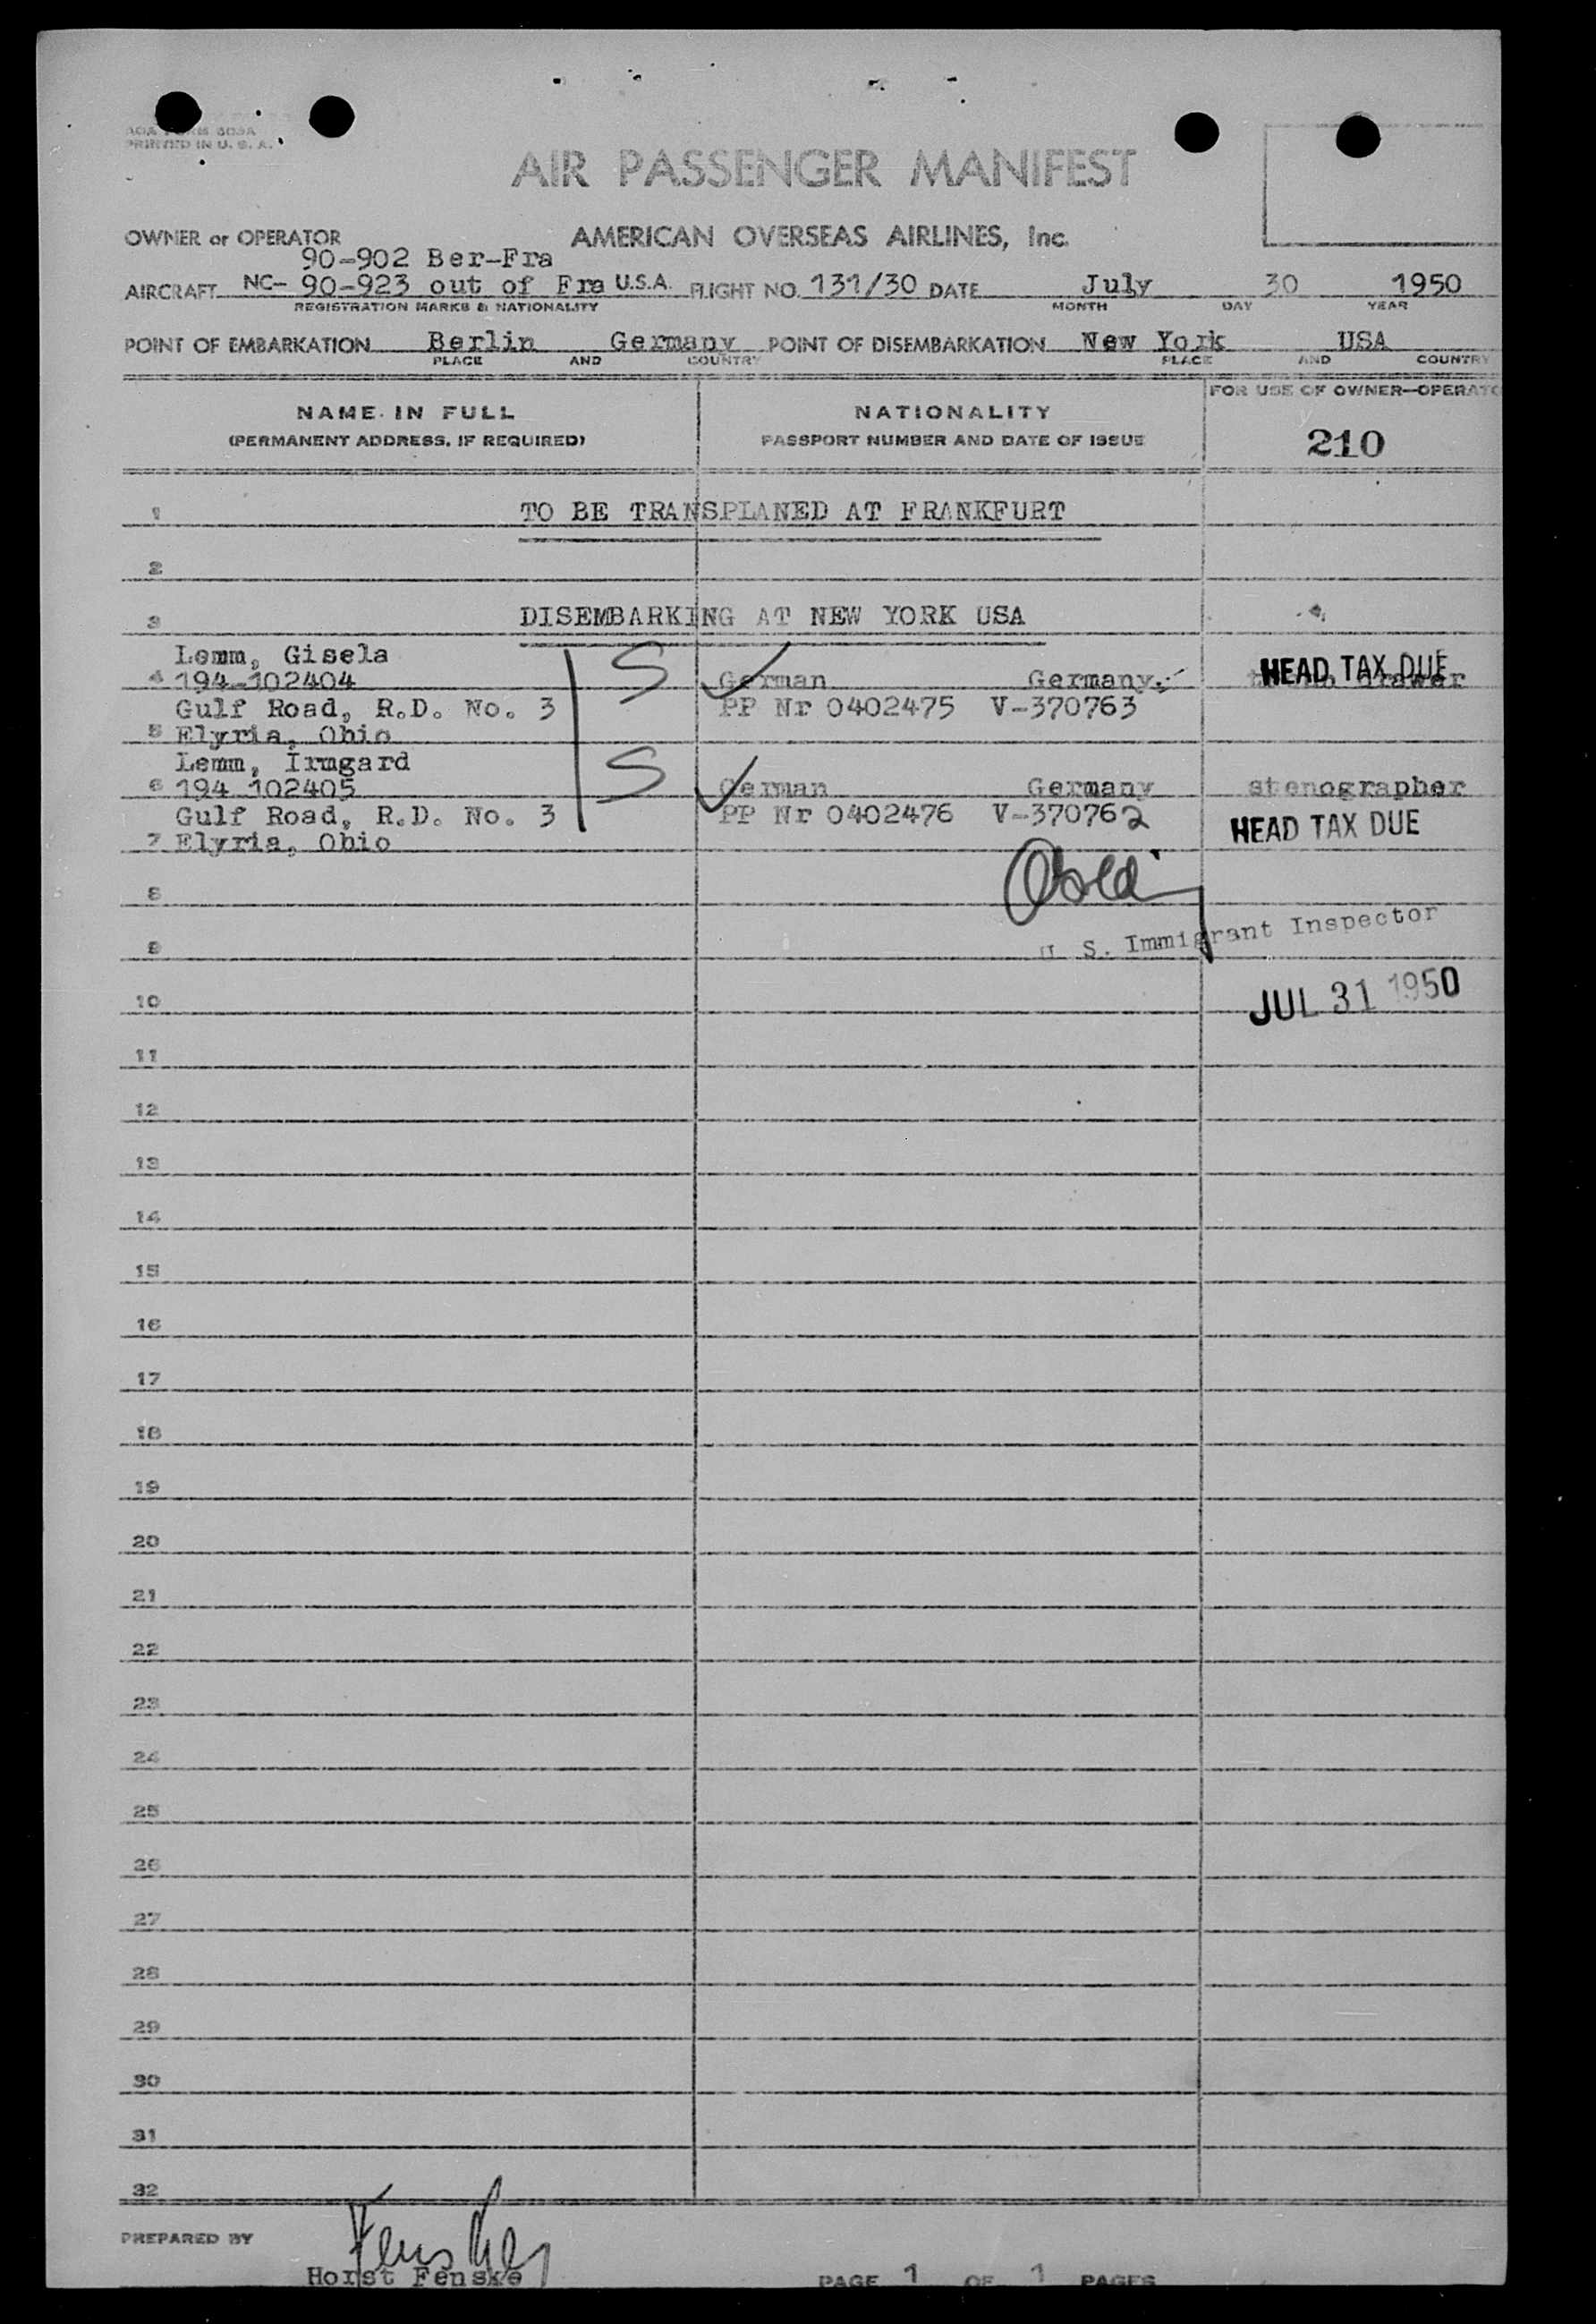 AOA FORM 803A
PRINTED IN U. S. A.
AIR PASSENGER MANIFEST
OWNER or OPERATOR AMERICAN OVERSEAS AIRLINES, Inc.
90-902 Ber-Fra
AIRCRAFT NC- 90-923 out of Fra U.S.A. FLIGHT NO. 131/30 DATE July 30 1950
REGISTRATION MARKS & NATIONALITY MONTH DAY YEAR
POINT OF EMBARKATION Berlin Germany POINT OF DISEMBARKATION New York USA
PLACE AND COUNTRY PLACE AND COUNTRY
NAME IN FULL NATIONALITY FOR USE OF OWNER—OPERATO
(PERMANENT ADDRESS, IF REQUIRED) PASSPORT NUMBER AND DATE OF ISSUE 210
1 TO BE TRANSPLANED AT FRANKFURT
2
3 DISEMBARKING AT NEW YORK USA
Lemm, Gisela S
4 194-102404 German Germany drawer
HEAD TAX DUE
Gulf Road, R.D. No. 3 PP Nr 0402475 V-370763
5 Elyria, Ohio
Lemm, Irmgard S
6 194 102405 German Germany stenographer
Gulf Road, R.D. No. 3 PP Nr 0402476 V-370762 HEAD TAX DUE
7 Elyria, Ohio
8
9 U. S. Immigrant Inspector
10 JUL 31 1950
11
12
13
14
15
16
17
18
19
20
21
22
23
24
25
26
27
28
29
30
31
32
PREPARED BY Fenske
Horst Fenske PAGE 1 OF 1 PAGES